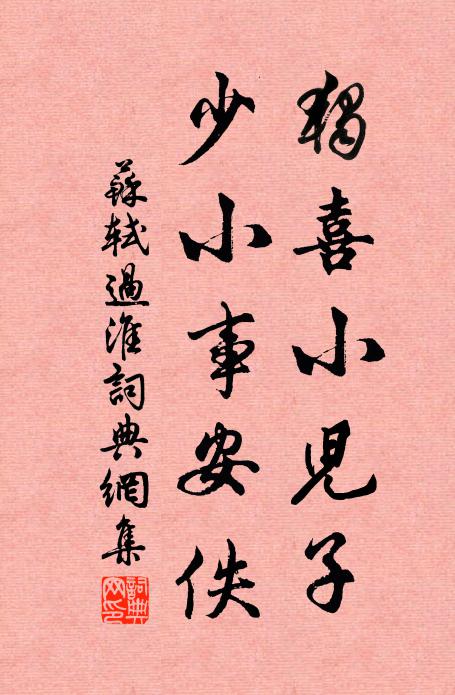 獨喜小兒子
少小事安佚
蘇軾過淮詞典網集
詞典网印